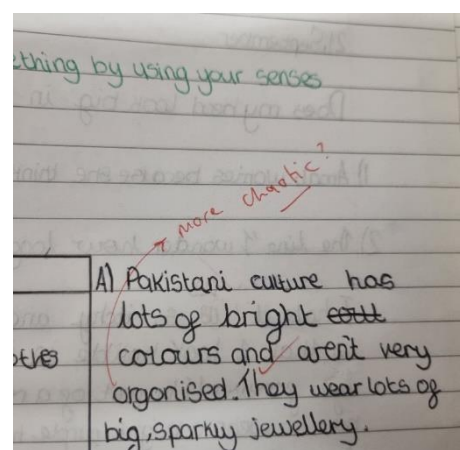 ething by using your senses
more chaotic?
A) Pakistani culture has
lots of bright
colours and aren't very
orgonised. They wear lots of
big, sparkly jewellery.